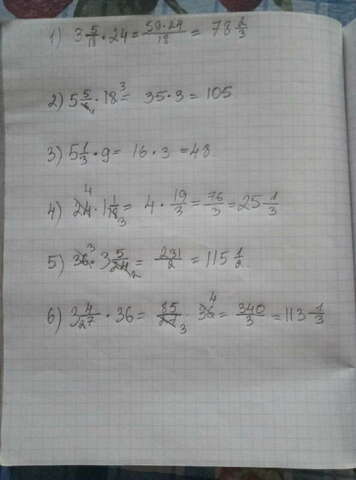 1) 3 5/18 · 24 = 59·24/18 = 78 2/3
2) 5 5/6 · 18 3 = 35 · 3 = 105
3) 5 1/3 · 9 = 16 · 3 = 48
4) 24 4 · 1 1/18 3 = 4 · 19/3 = 76/3 = 25 1/3
5) 36 3 · 3 5/24 2 = 231/2 = 115 1/2
6) 3 4/27 · 36 = 85/27 3 · 36 4 = 340/3 = 113 1/3